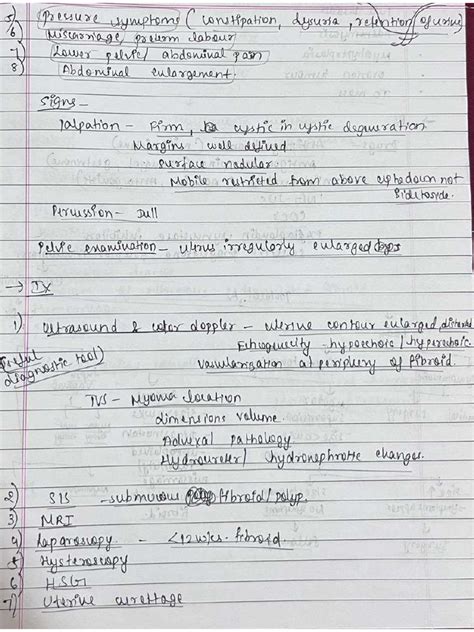 5) Pressure symptoms (constipation, dysuria, retention of urine)
6) Miscarriage, preterm labour
7) Lower pelvic/ abdominal pain
8) Abdominal enlargement
Signs -
Palpation - Firm, cystic in cystic degeneration
Margins well defined
Surface nodular
Mobile restricted from above
side to side.
Percussion - Dull
Pelvic examination - uterus irregularly enlarged
→ IX
1) Ultrasound & color doppler - uterine contour enlarged distorted
Echogenecity - hypoechoic / hyperechoic
(Useful diagnostic tool)
Vascularization at periphery of fibroid.
TVS - Myoma location
dimensions volume
Adnexal pathology
Hydroureter/ hydronephrotic changes.
2) SIS - submucous fibroid/polyp.
3) MRI
4) Laparoscopy - <12 wks. fibroid.
5) Hysteroscopy
6) HSG
7) Uterine curettage